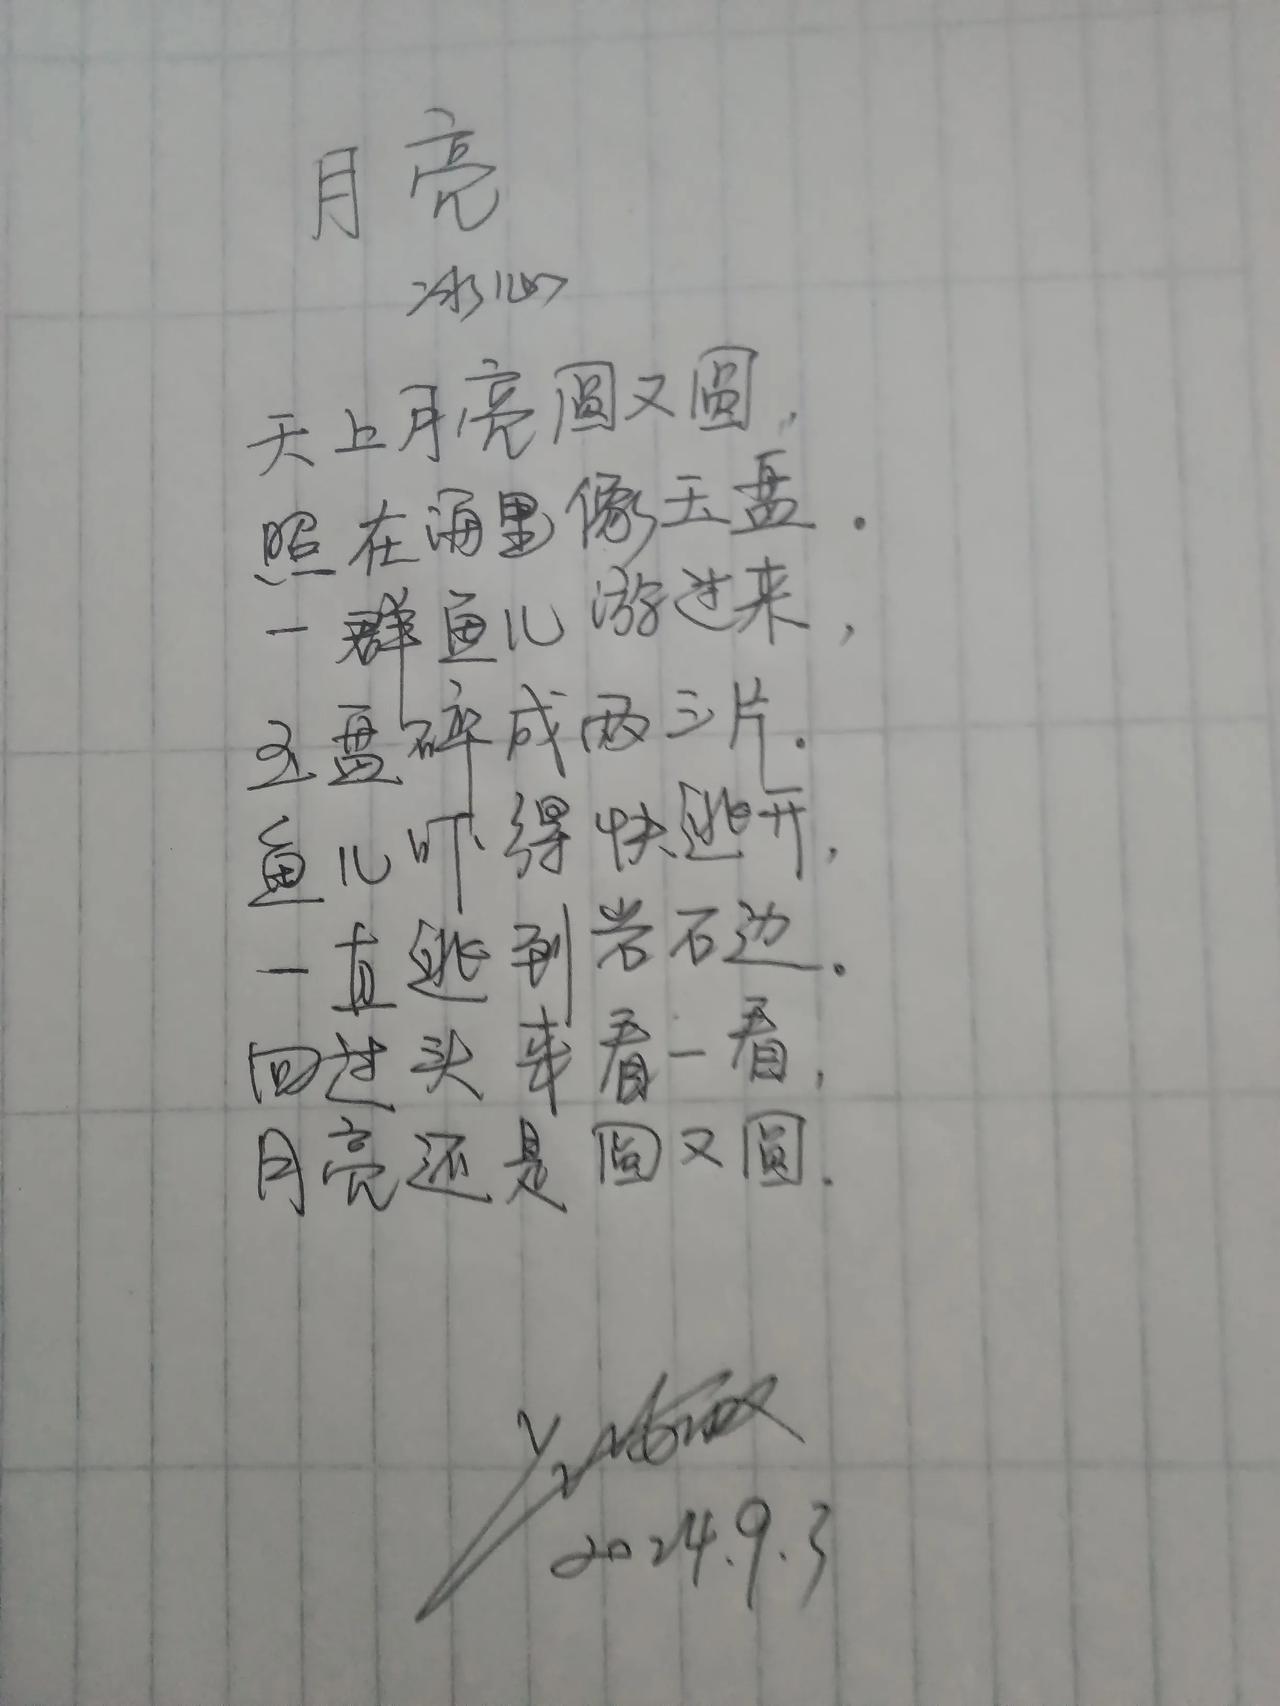 月亮
冰心
天上月亮圆又圆，
照在海里像玉盘.
一群鱼儿游过来，
玉盘碎成两三片.
鱼儿吓得快逃开，
一直逃到岩石边.
回过头来看一看，
月亮还是圆又圆.
2024.9.3